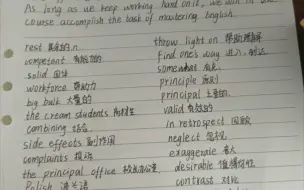 As long as we keep working hard on it, we will in due
course accomplish the task of mastering English.
rest 其余的 n
competent 有能力的
solid 固体
workforce 劳动力
big bulk 大量的
the cream students
combining 结合
side effects 副作用
complaints 投诉
the principal office
Polish 波兰语
throw light on 帮助理解
find one's way 进入,到达
somewhat 有点
principle 原则
principal 主要的
valid 有效的
in retrospect 回顾
neglect 忽视
exaggerate 夸大
desirable 值得
contrast 对比